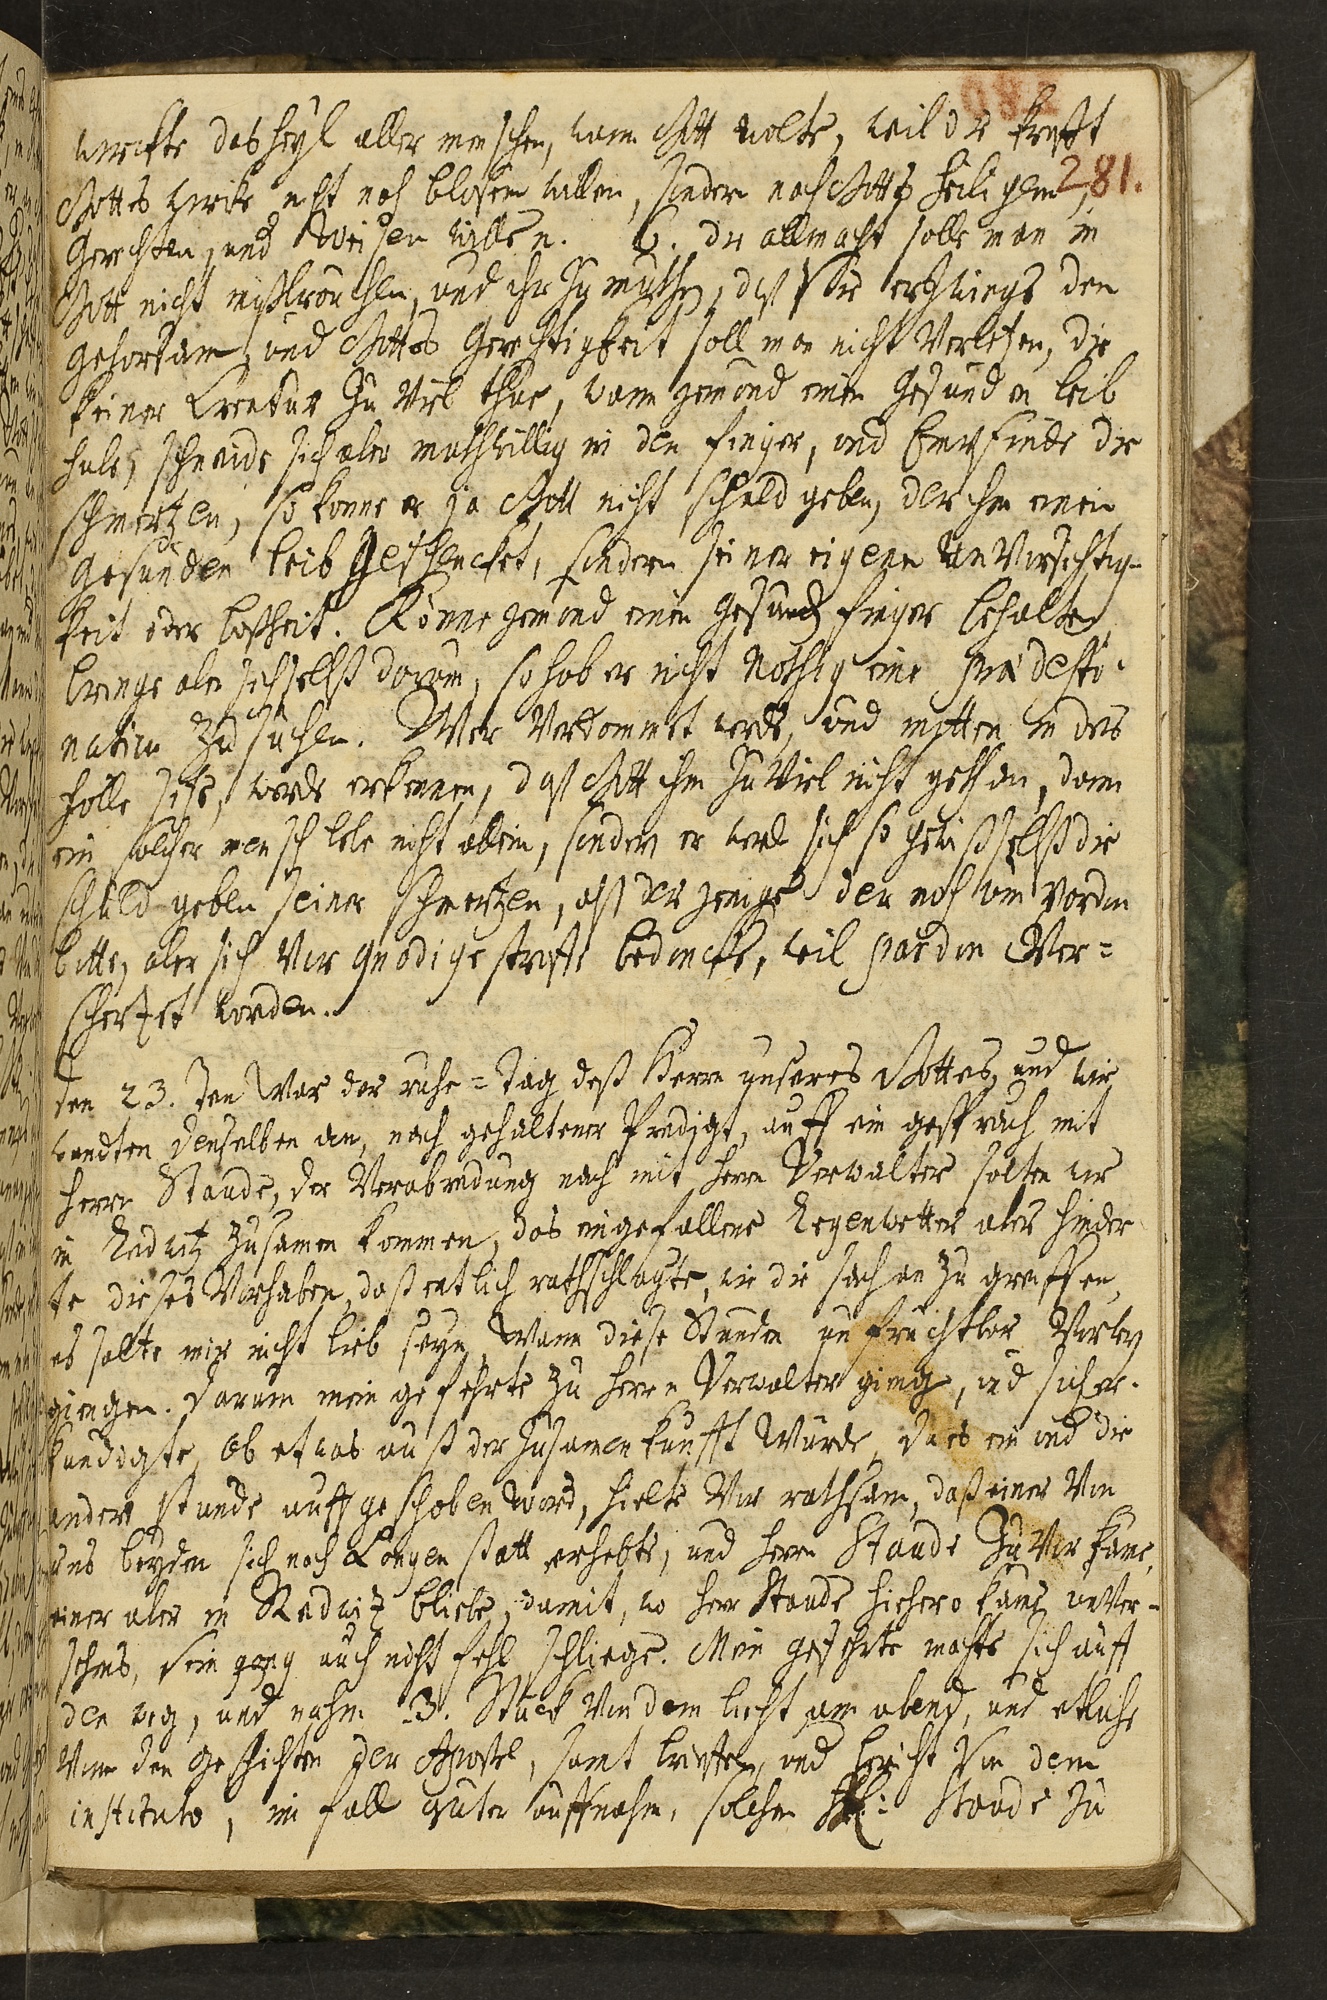 281.
würckte das heyl aller menschen, wann Gott wolte, weil die krafft
Gottes würcke nicht nach blosem willen, sondern nach Gottes heiligem,
Gerechten, und Weisen willen. 6. die allmacht solle man in
Gott nicht mißbrauchen, und ihr Zumuthen, daß Sie erzwinge den
gehorsam, und Gottes Gerechtigkeit soll man nicht Verletzen, die
keiner Creatur Zu Viel thue, wann jemand einen Gesunden leib
habe, schneide sich aber muthwillig in den finger, und Empfinde die
schmertzen, so könne er ja Gott nicht schuld geben, der ihm einen
Gesunden leib Geschencket, sondern seiner eigenen UnVorsichtig-
keit oder boßheit. Könne jemand einen Gesunden finger behalten
bringe aber sich selbst darum, so hab er nicht Nöthig eine prædesti-
nation Zu suchen. Wer Verdammet werde, und mitten in der
hölle sitze, werde erkennen, daß Gott ihm Zu Viel nicht gethan, dann
ein solcher mensch lebe nicht allein, sondern er werde sich so gewiß selbst die
schuld geben seiner schmertzen, als derjenige der noch um pardon
bitte, aber sich Vor gnädige straffe bedancke, weil pardon Ver=
schertzet worden.
Den 23. Jan War der ruhe=Tag deß Herrn unseres Gottes, und wir
wandten denselben an, nach gehaltener Predigt, auff ein gespräch mit
herrn Staude, der Verabredung nach mit herrn Verwalter solten wir
in Redwitz Zusamen kommen, das eingefallene Regenwetter aber hinder
te dieses Vorhaben, daß entlich rathschlagte, wie die sach an Zu greiffen,
es solte mir nicht lieb seyn, Wann diese Stunden unfruchtbar Vorbey
giengen. Darum mein gefehrte Zu herrn Verwalter gieng, und sich er-
kundigte, Ob etwas auß der Zusamenkunfft Würde, Da es ein und die
andere stunde auffgeschoben ward, hielte Vor rathsam, daß einer Von
uns beyden sich nach Langenstatt erhebte, und herrn Staude Zu Vor käme,
einer aber in Redwitz bliebe, damit, wo herr Staude hiehero käme unVer-
sehens, sein gang auch nicht fehl schliege. Mein gefehrte machte sich auff
den weg, und nahm 3. Stück Von dem licht am abend, und etliche
Von den Geschichten der Apostel, samt brieffen, und bericht Von dem
instituto, im fall guter auffnahm, solchen H: Staude Zu